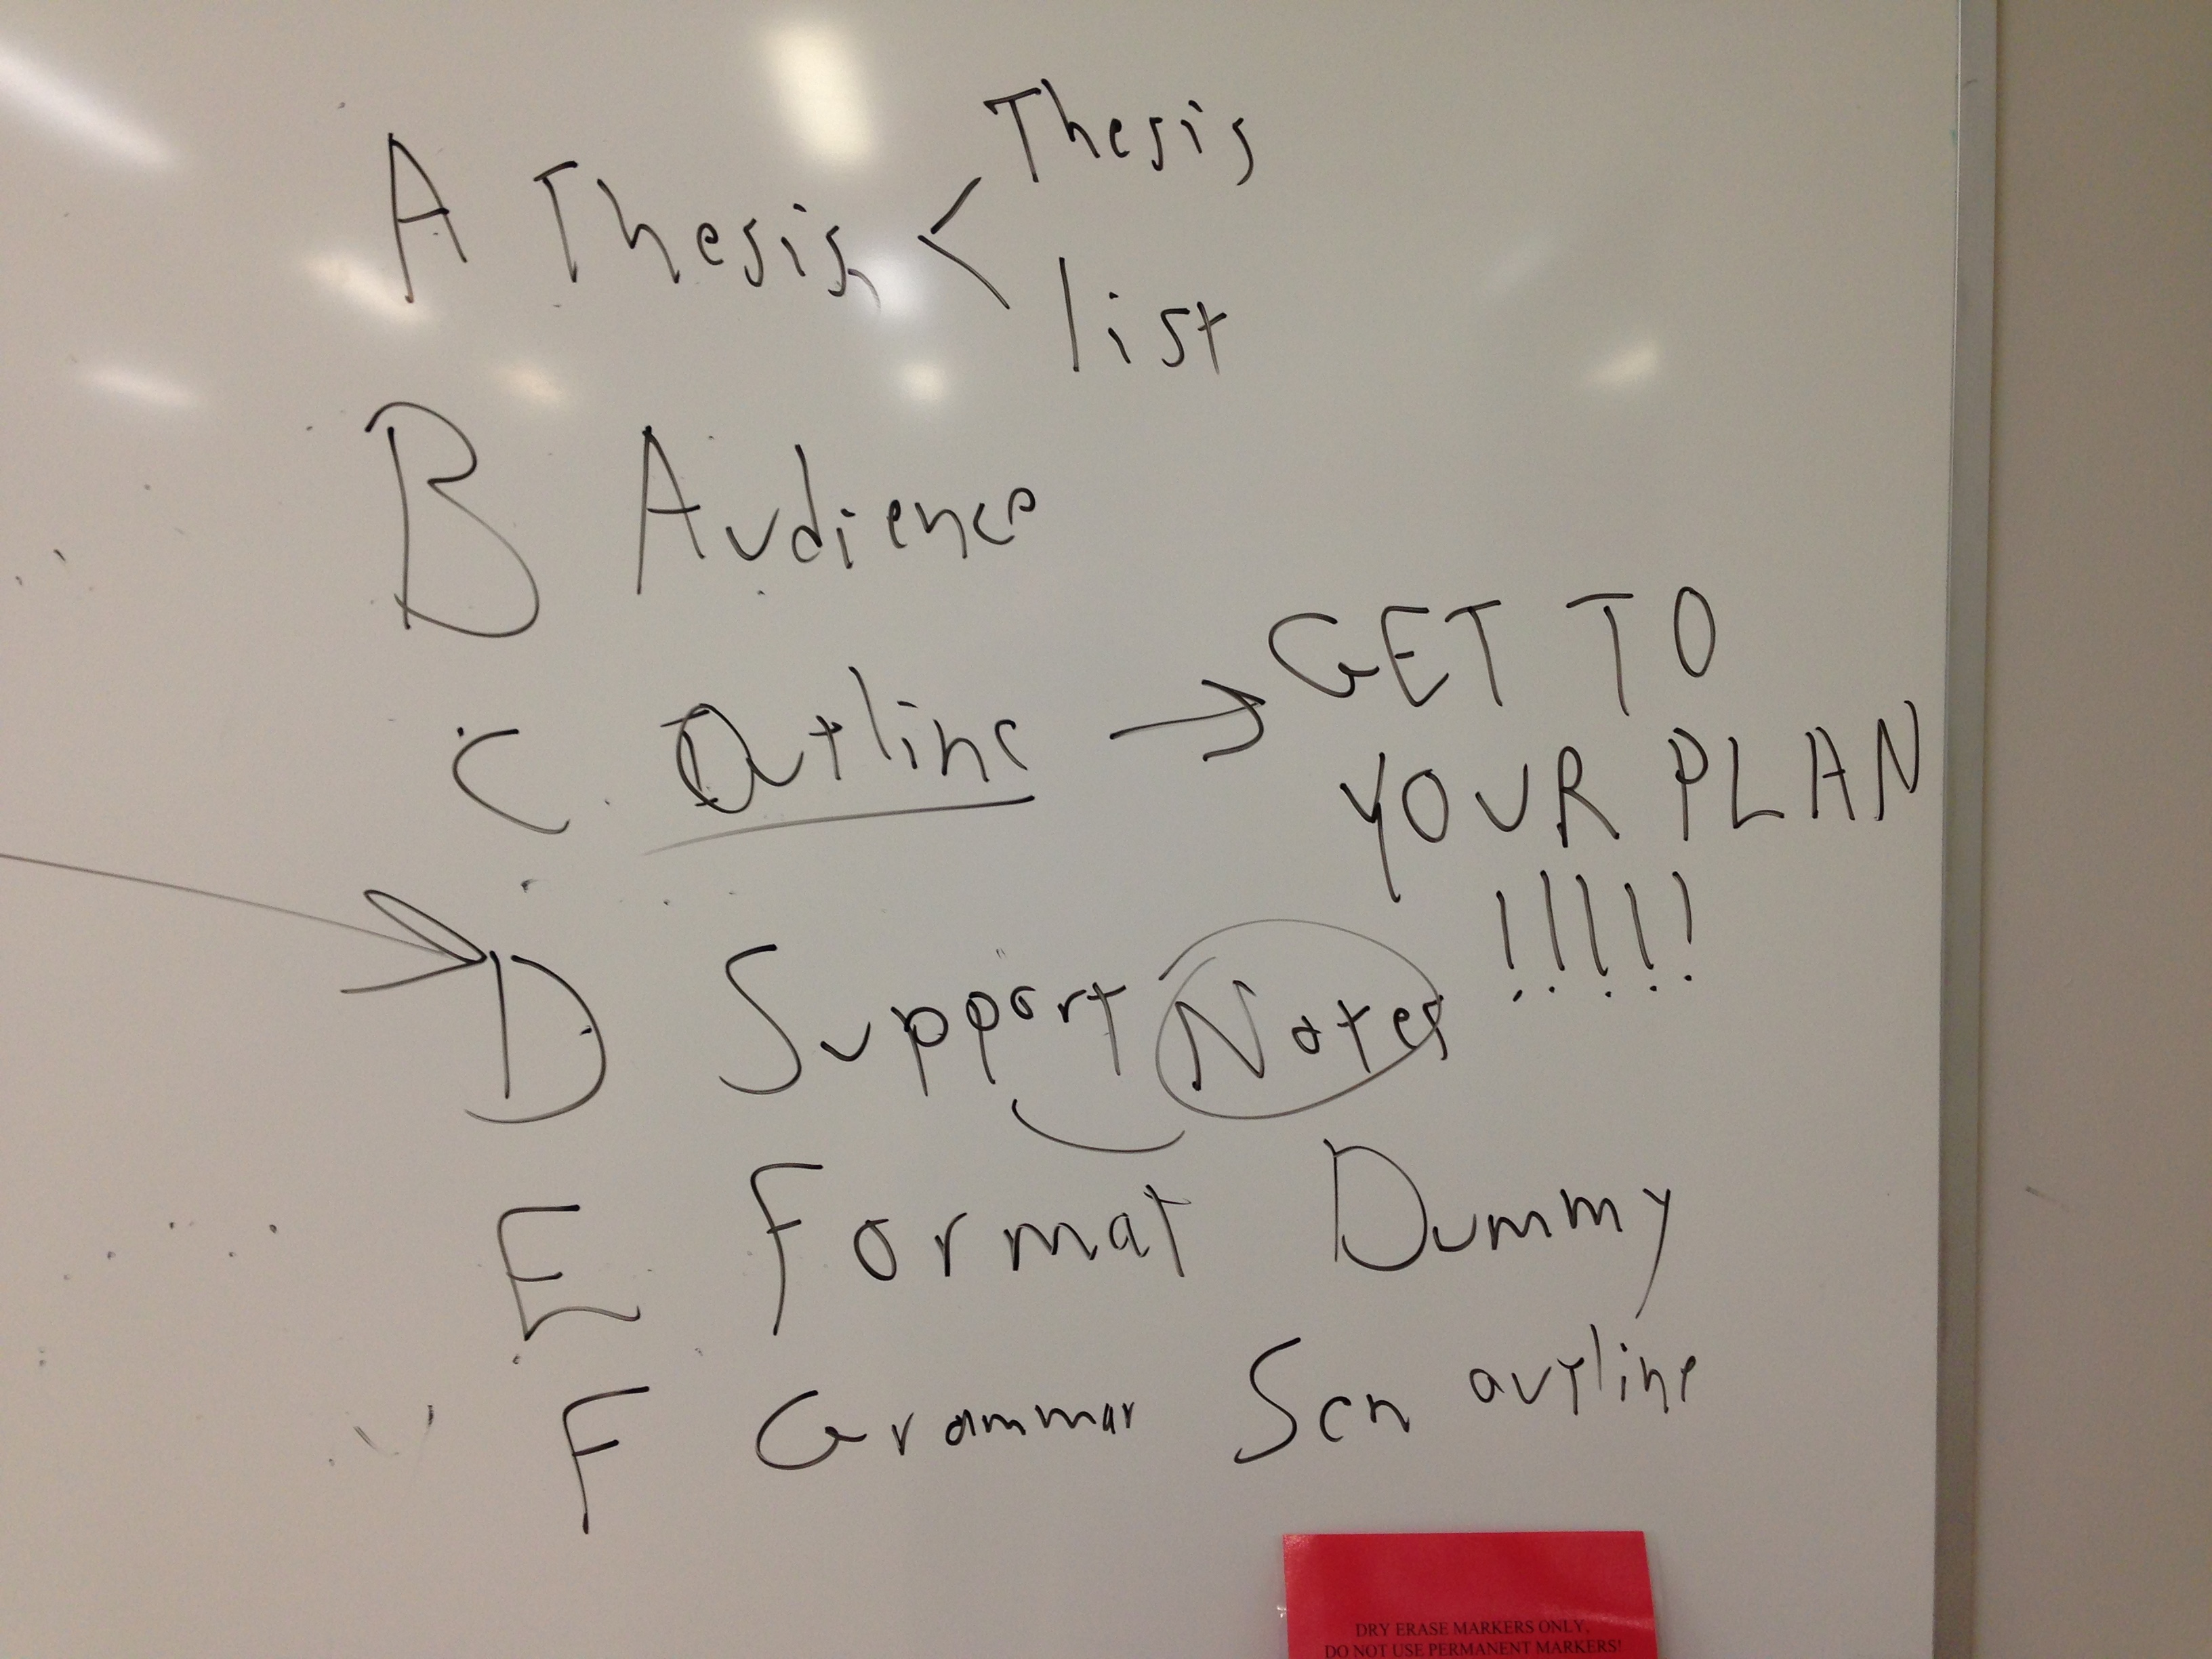 A Thesis < Thesis
list
B Audience
C. Outline → GET TO
YOUR PLAN
!!!!!
D Support Notes
E Format Dummy
F Grammar Scn outline
DRY ERASE MARKERS ONLY,
DO NOT USE PERMANENT MARKERS!